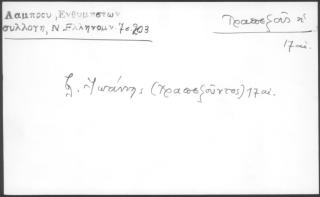 Λαμπρου, Ενθυμησεων
συλλογη, Ν. Ελληνομν. 7ε. 203
Τραπεζοῦς
17 αἰ.
Ἰωάννης (Τραπεζοῦντος) 17 αἰ.